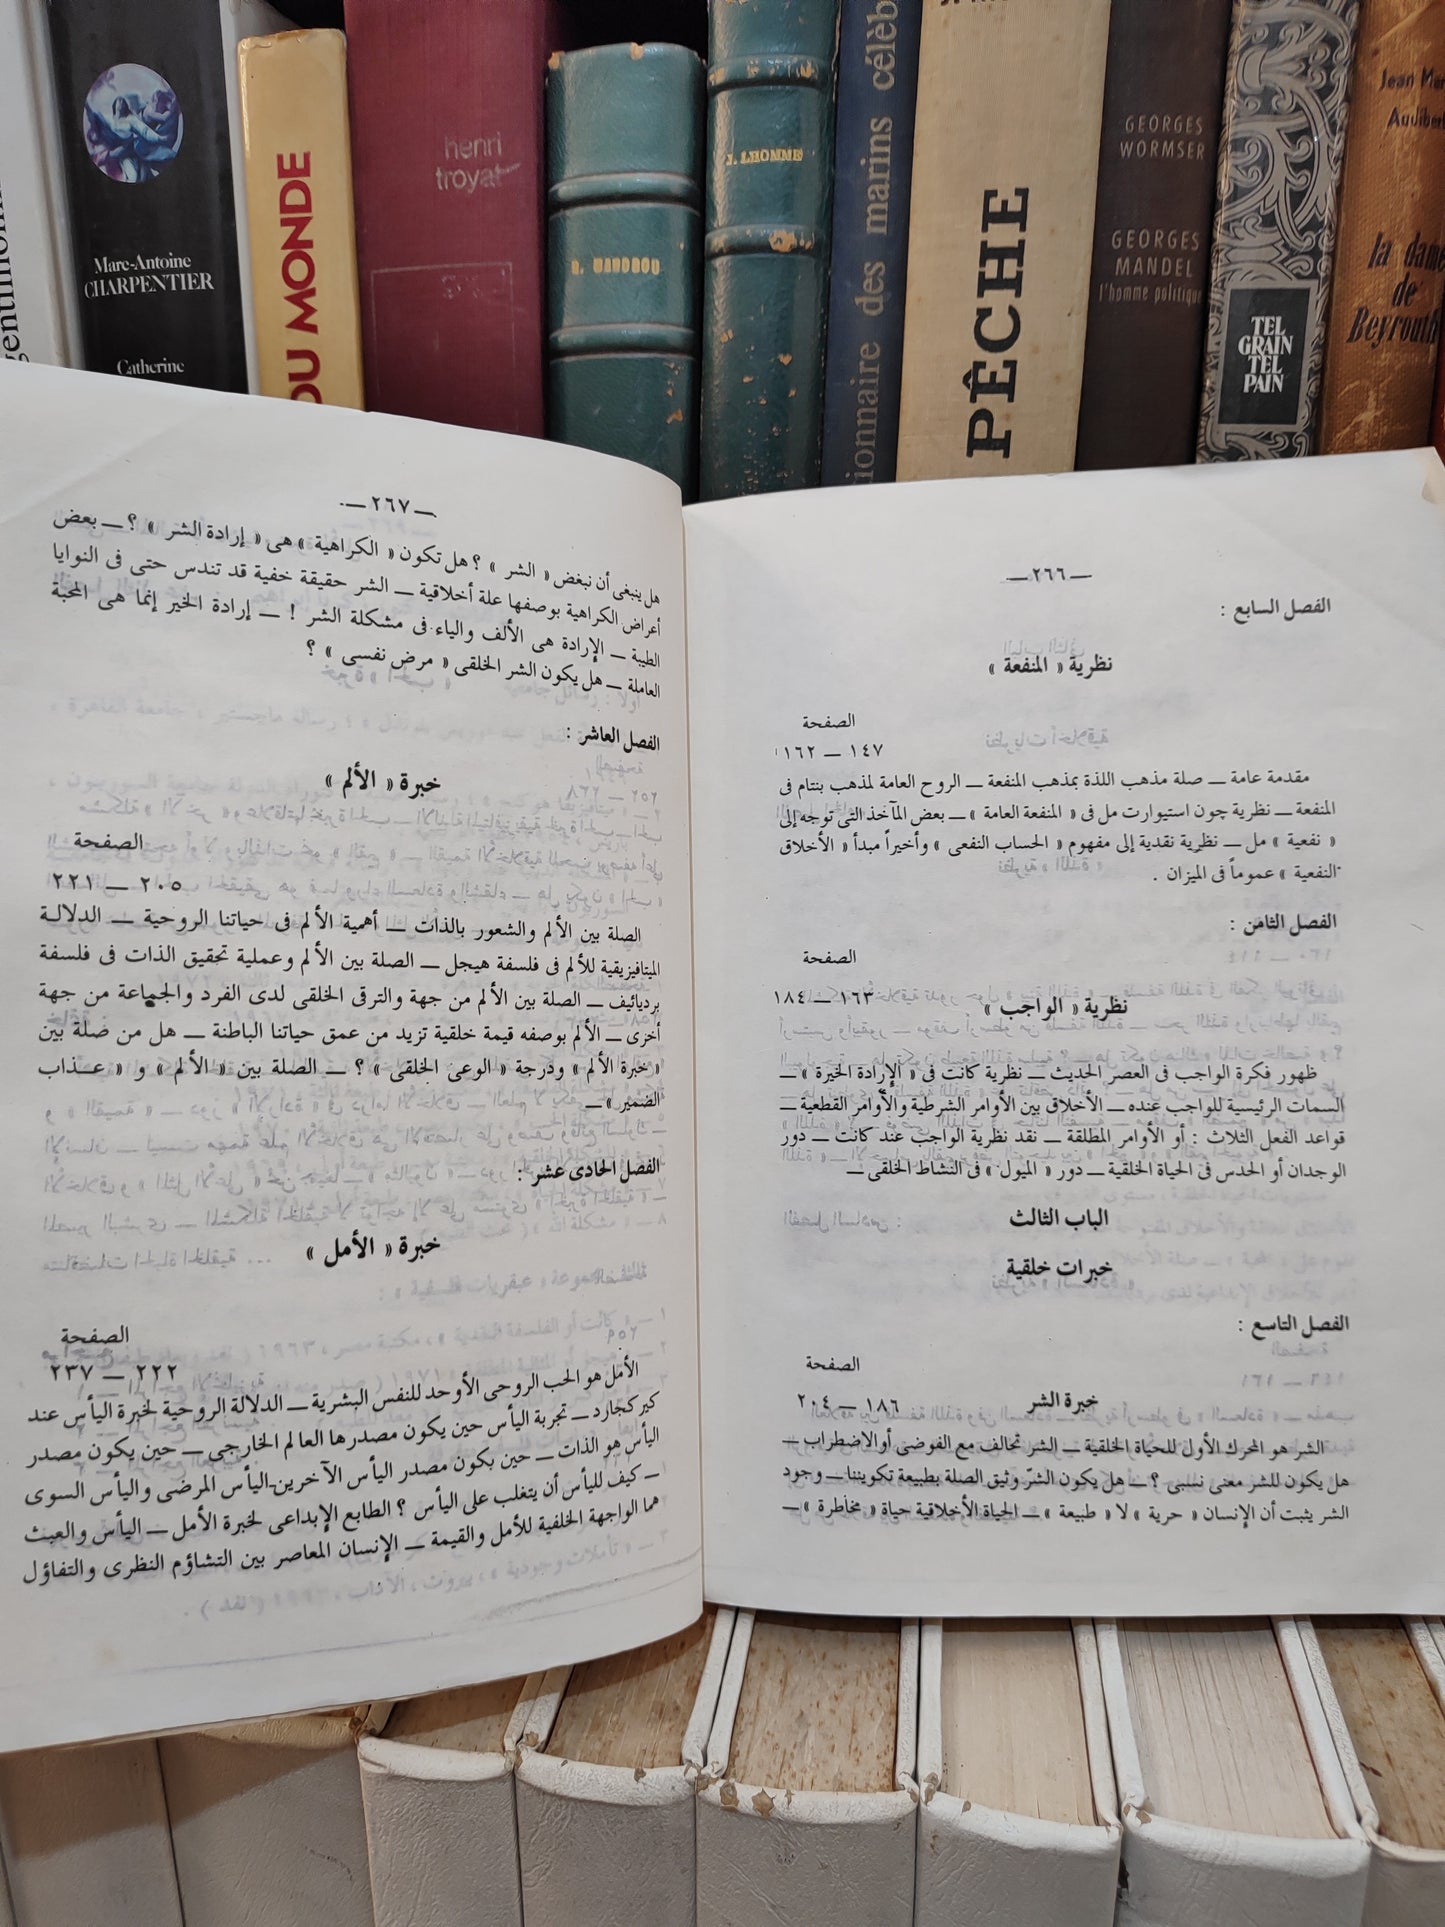 Marc-Antoine
CHARPENTIER
Catherine
DU MONDE
henri
troyat
R. MANDROU
J. LHOMME
des marins célèb
PÊCHE
GEORGES
WORMSER
GEORGES
MANDEL
l'homme politique
TEL
GRAIN
TEL
PAIN
Jean Mar
Audiber
la dame
de
Beyrouth
— ٢٦٦ —
الفصل السابع :
نظرية « المنفعة »
الصفحة
١٤٧ — ١٦٢
مقدمة عامة — صلة مذهب اللذة بمذهب المنفعة — الروح العامة لمذهب بنتام فى
المنفعة — نظرية چون استيوارت مل فى « المنفعة العامة » — بعض المآخذ التى توجه إلى
« نفعية » مل — نظرية نقدية إلى مفهوم « الحساب النفعى » وأخيراً مبدأ « الأخلاق
النفعية » عموماً فى الميزان .
الفصل الثامن :
الصفحة
نظرية « الواجب » ١٦٣ — ١٨٤
ظهور فكرة الواجب فى العصر الحديث — نظرية كانت فى « الإرادة الخيرة » —
السمات الرئيسية للواجب عنده — الأخلاق بين الأوامر الشرطية والأوامر القطعية —
قواعد الفعل الثلاث : أو الأوامر المطلقة — نقد نظرية الواجب عند كانت — دور
الوجدان أو الحدس فى الحياة الخلقية — دور « الميول » فى النشاط الخلقى —
الباب الثالث
خبرات خلقية
الفصل التاسع :
الصفحة
خبرة الشر ١٨٦ — ٢٠٤
الشر هو المحرك الأول للحياة الخلقية — الشر تحالف مع الفوضى أو الاضطراب —
هل يكون للشر معنى نسبى ؟ — هل يكون الشرّ وثيق الصلة بطبيعة تكويننا — وجود
الشر يثبت أن الإنسان « حرية » لا « طبيعة » — الحياة الأخلاقية حياة « مخاطرة » —
— ٢٦٧ —
هل ينبغى أن نبغض « الشر » ؟ هل تكون « الكراهية » هى « إرادة الشر » ؟ — بعض
أعراض الكراهية بوصفها علة أخلاقية — الشر حقيقة خفية قد تندس حتى فى النوايا
الطيبة — الإرادة هى الألف والياء فى مشكلة الشر ! — إرادة الخير إنما هى المحبة
العاملة — هل يكون الشر الخلقى « مرض نفسى » ؟
الفصل العاشر :
خبرة « الألم »
الصفحة
٢٠٥ — ٢٢١
الصلة بين الألم والشعور بالذات — أهمية الألم فى حياتنا الروحية — الدلالة
الميتافيزيقية للألم فى فلسفة هيجل — الصلة بين الألم وعملية تحقيق الذات فى فلسفة
برديائيف — الصلة بين الألم من جهة والترقى الخلقى لدى الفرد والجماعة من جهة
أخرى — الألم بوصفه قيمة خلقية تزيد من عمق حياتنا الباطنة — هل من صلة بين
« خبرة الألم » ودرجة « الوعى الخلقى » ؟ — الصلة بين « الألم » و « عذاب
الضمير » —
الفصل الحادى عشر :
خبرة « الأمل »
الصفحة
٢٢٢ — ٢٣٧
الأمل هو الحب الروحى الأوحد للنفس البشرية — الدلالة الروحية لخبرة اليأس عند
كيركجارد — تجربة اليأس حين يكون مصدرها العالم الخارجى — حين يكون مصدر
اليأس هو الذات — حين يكون مصدر اليأس الآخرين - اليأس المرضى واليأس السوى
— كيف لليأس أن يتغلب على اليأس ؟ الطابع الإبداعى لخبرة الأمل — اليأس والعبث
هما الواجهة الخلفية للأمل والقيمة — الإنسان المعاصر بين التشاؤم النظرى والتفاؤل